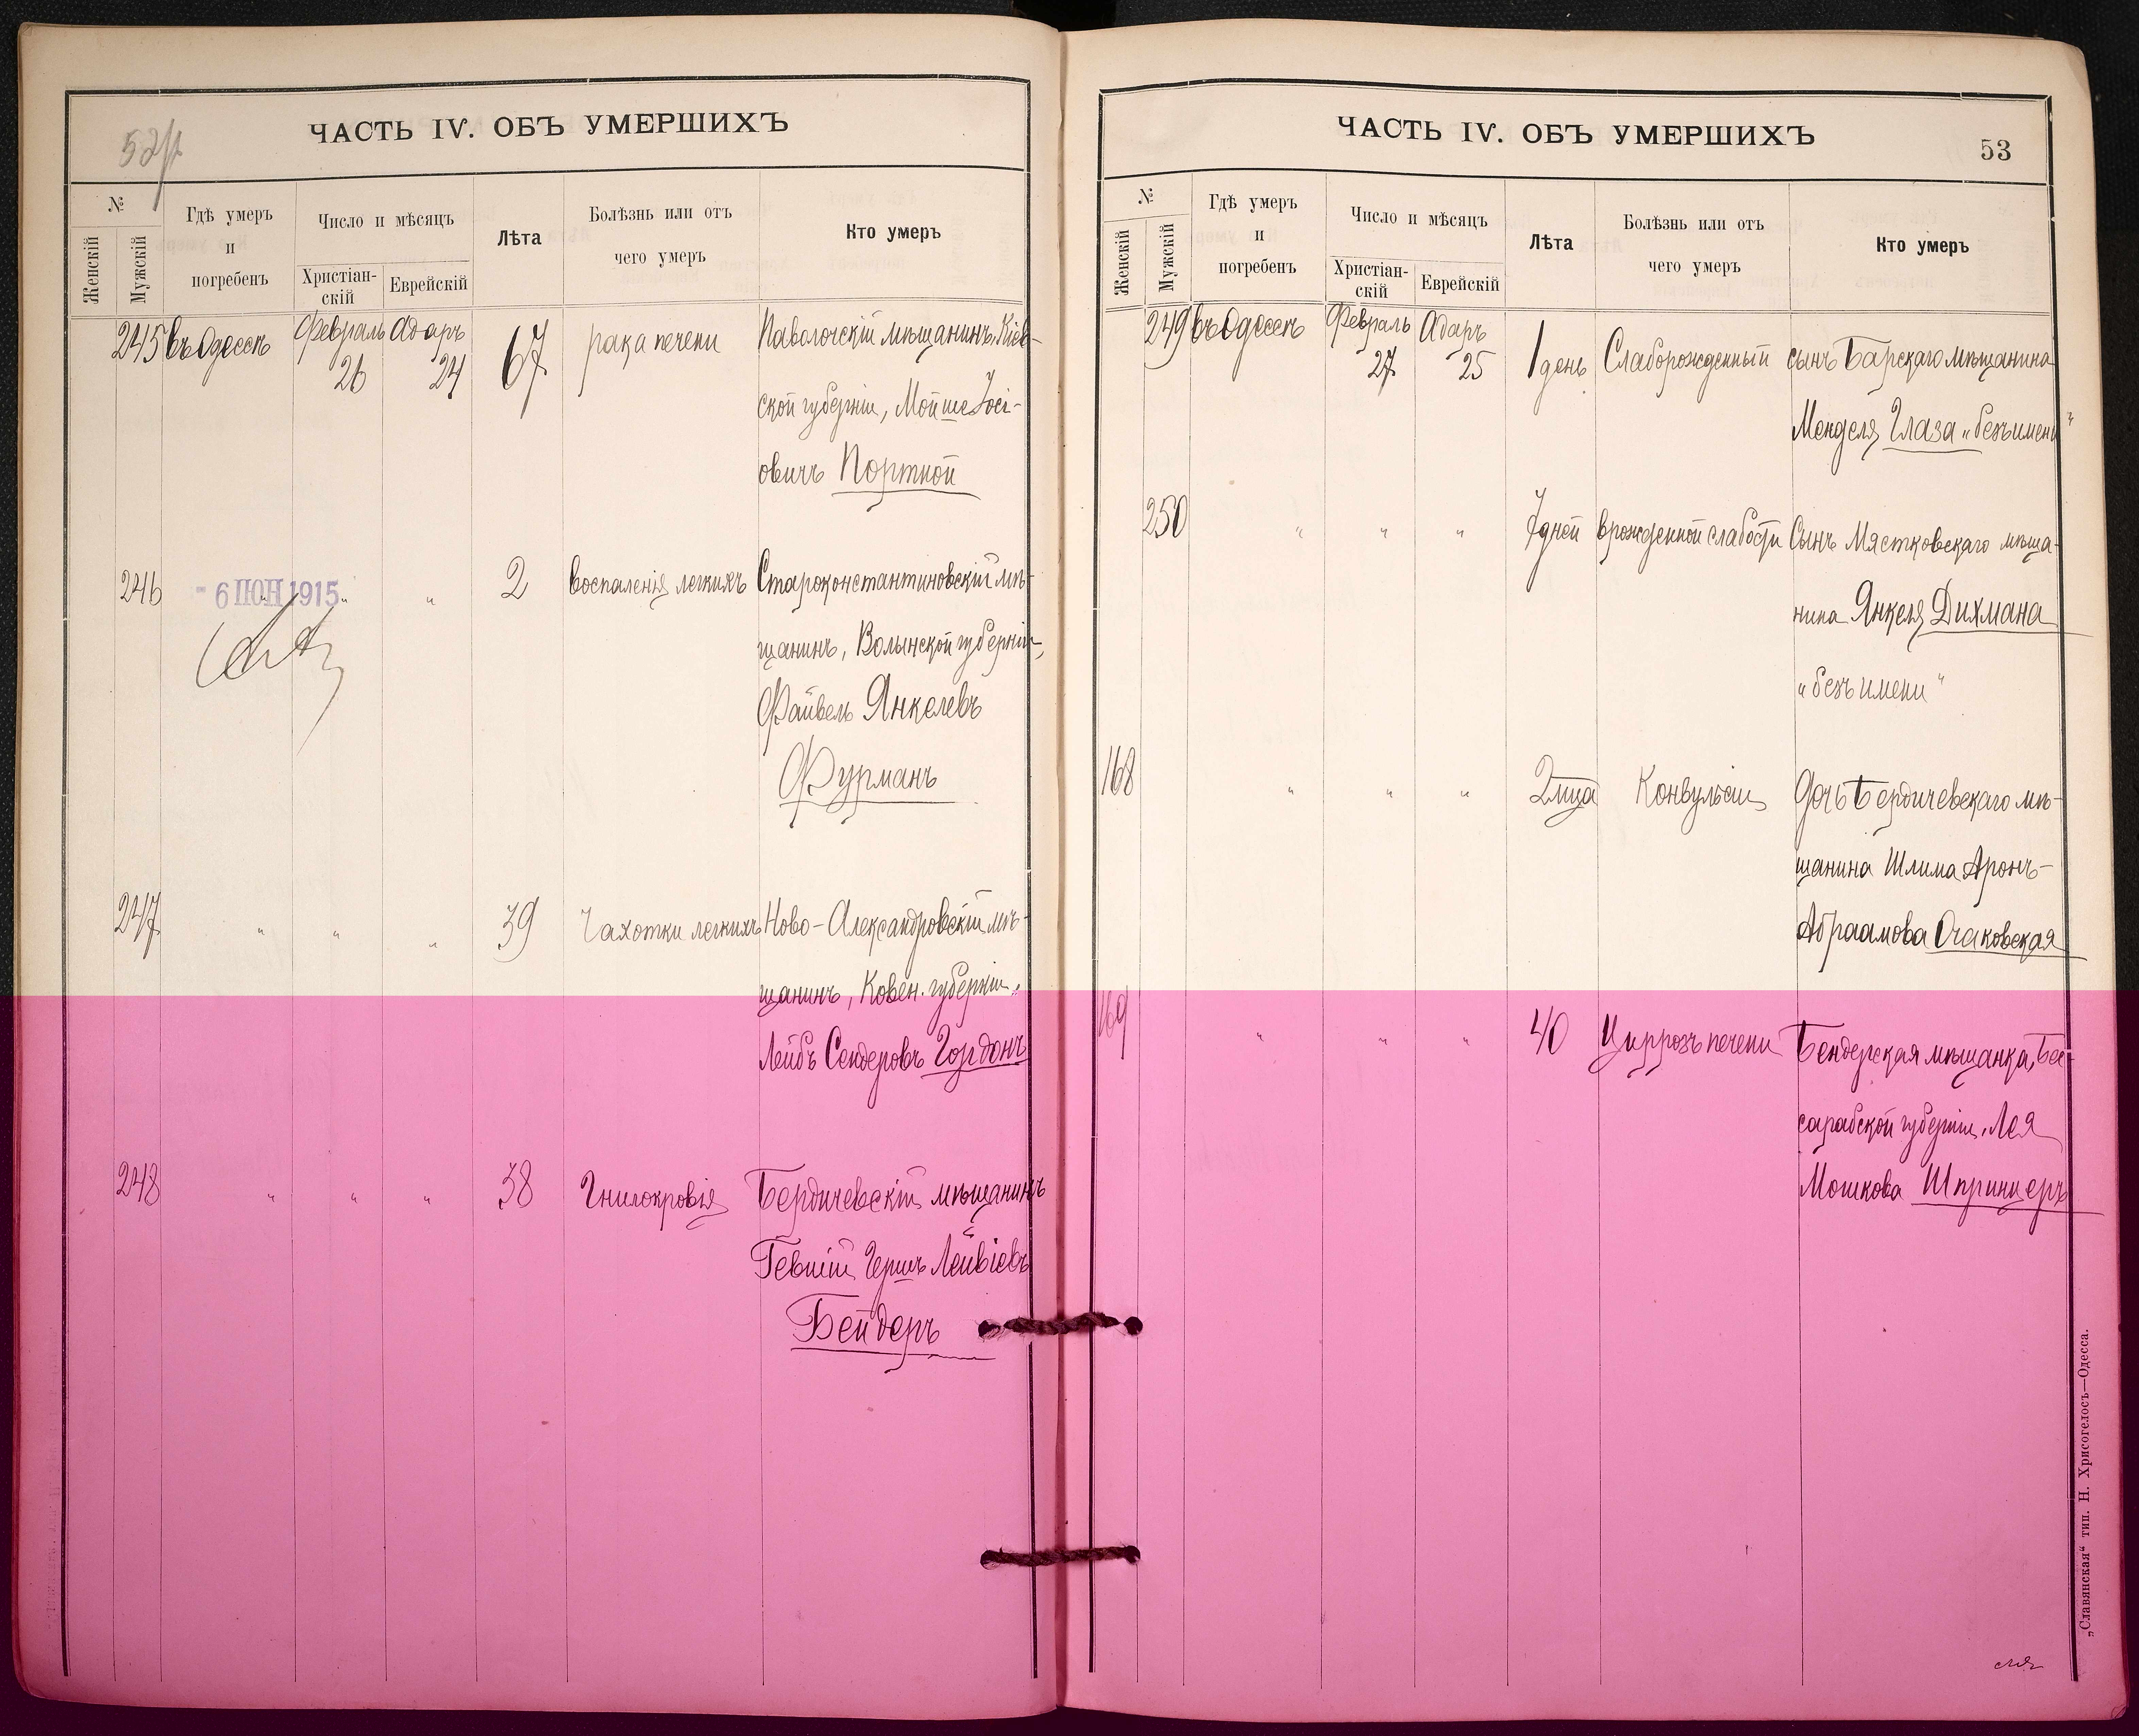 ЧАСТЬ IV. ОБЪ УМЕРШИХЪ
№
Женскій
Мужскій
Гдѣ умеръ
и
погребенъ
Число и мѣсяцъ
Христіан-
скій
Еврейскій
Лѣта
Болѣзнь или отъ
чего умеръ
Кто умеръ
245 въ Одессѣ Февраль 26 Адаръ 24 67 рака печени Паволочскій мѣщанинъ, Кіев-
ской губерніи, Мойше Іосі-
овичъ Портной
246 " " " 2 Воспаленія легкихъ Староконстантиновскій мѣ-
- 6 ІЮН 1915
щанинъ, Волынской губерніи,
Файвель Янкелевъ
Фурманъ
247 " " " 39 Чахотки легкихъ Ново-Александровскій мѣ-
щанинъ, Ковен. губерніи,
Лейбъ Сендеровъ Гордонъ
248 " " " 38 Гнилокровія Бердичевскій мѣщанинъ
Гершъ Лейвіевъ
Бейдеръ
ЧАСТЬ IV. ОБЪ УМЕРШИХЪ
53
№
Женскій
Мужскій
Гдѣ умеръ
и
погребенъ
Число и мѣсяцъ
Христіан-
скій
Еврейскій
Лѣта
Болѣзнь или отъ
чего умеръ
Кто умеръ
249 въ Одессѣ Февраль 27 Адаръ 25 1 день Слаборожденный сынъ Барскаго мѣщанина
Менделя Глаза „безъ имени"
250 " " " 7 дней врожденной слабости Сынъ Мястковскаго мѣща-
нина Янкеля Дихмана
„безъ имени"
168 " " " 2 мца Конвульсіи Дочь Бердичевскаго мѣ-
щанина Шлима Аронъ-
Абраамова Очаковская
169 " " " 40 Циррозъ печени Бендерская мѣщанка, Бес-
сарабской губерніи, Лея
Мошкова Шпринцеръ
„Славянская“ тип. Н. Хрисогелосъ—Одесса.